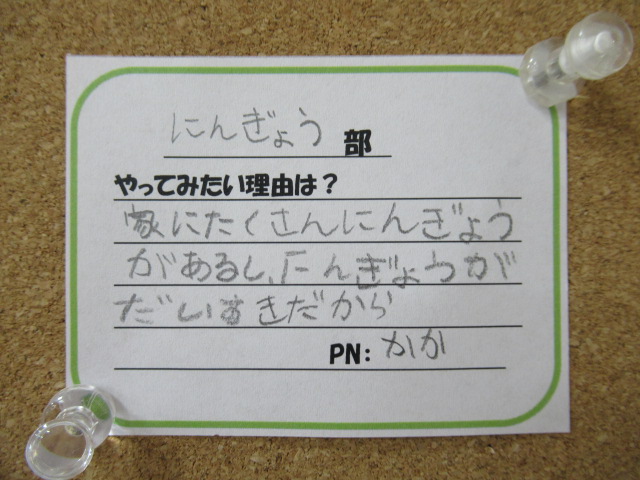 にんぎょう 部
やってみたい理由は？
家にたくさんにんぎょう
があるし、にんぎょうが
だいすきだから
PN: かか